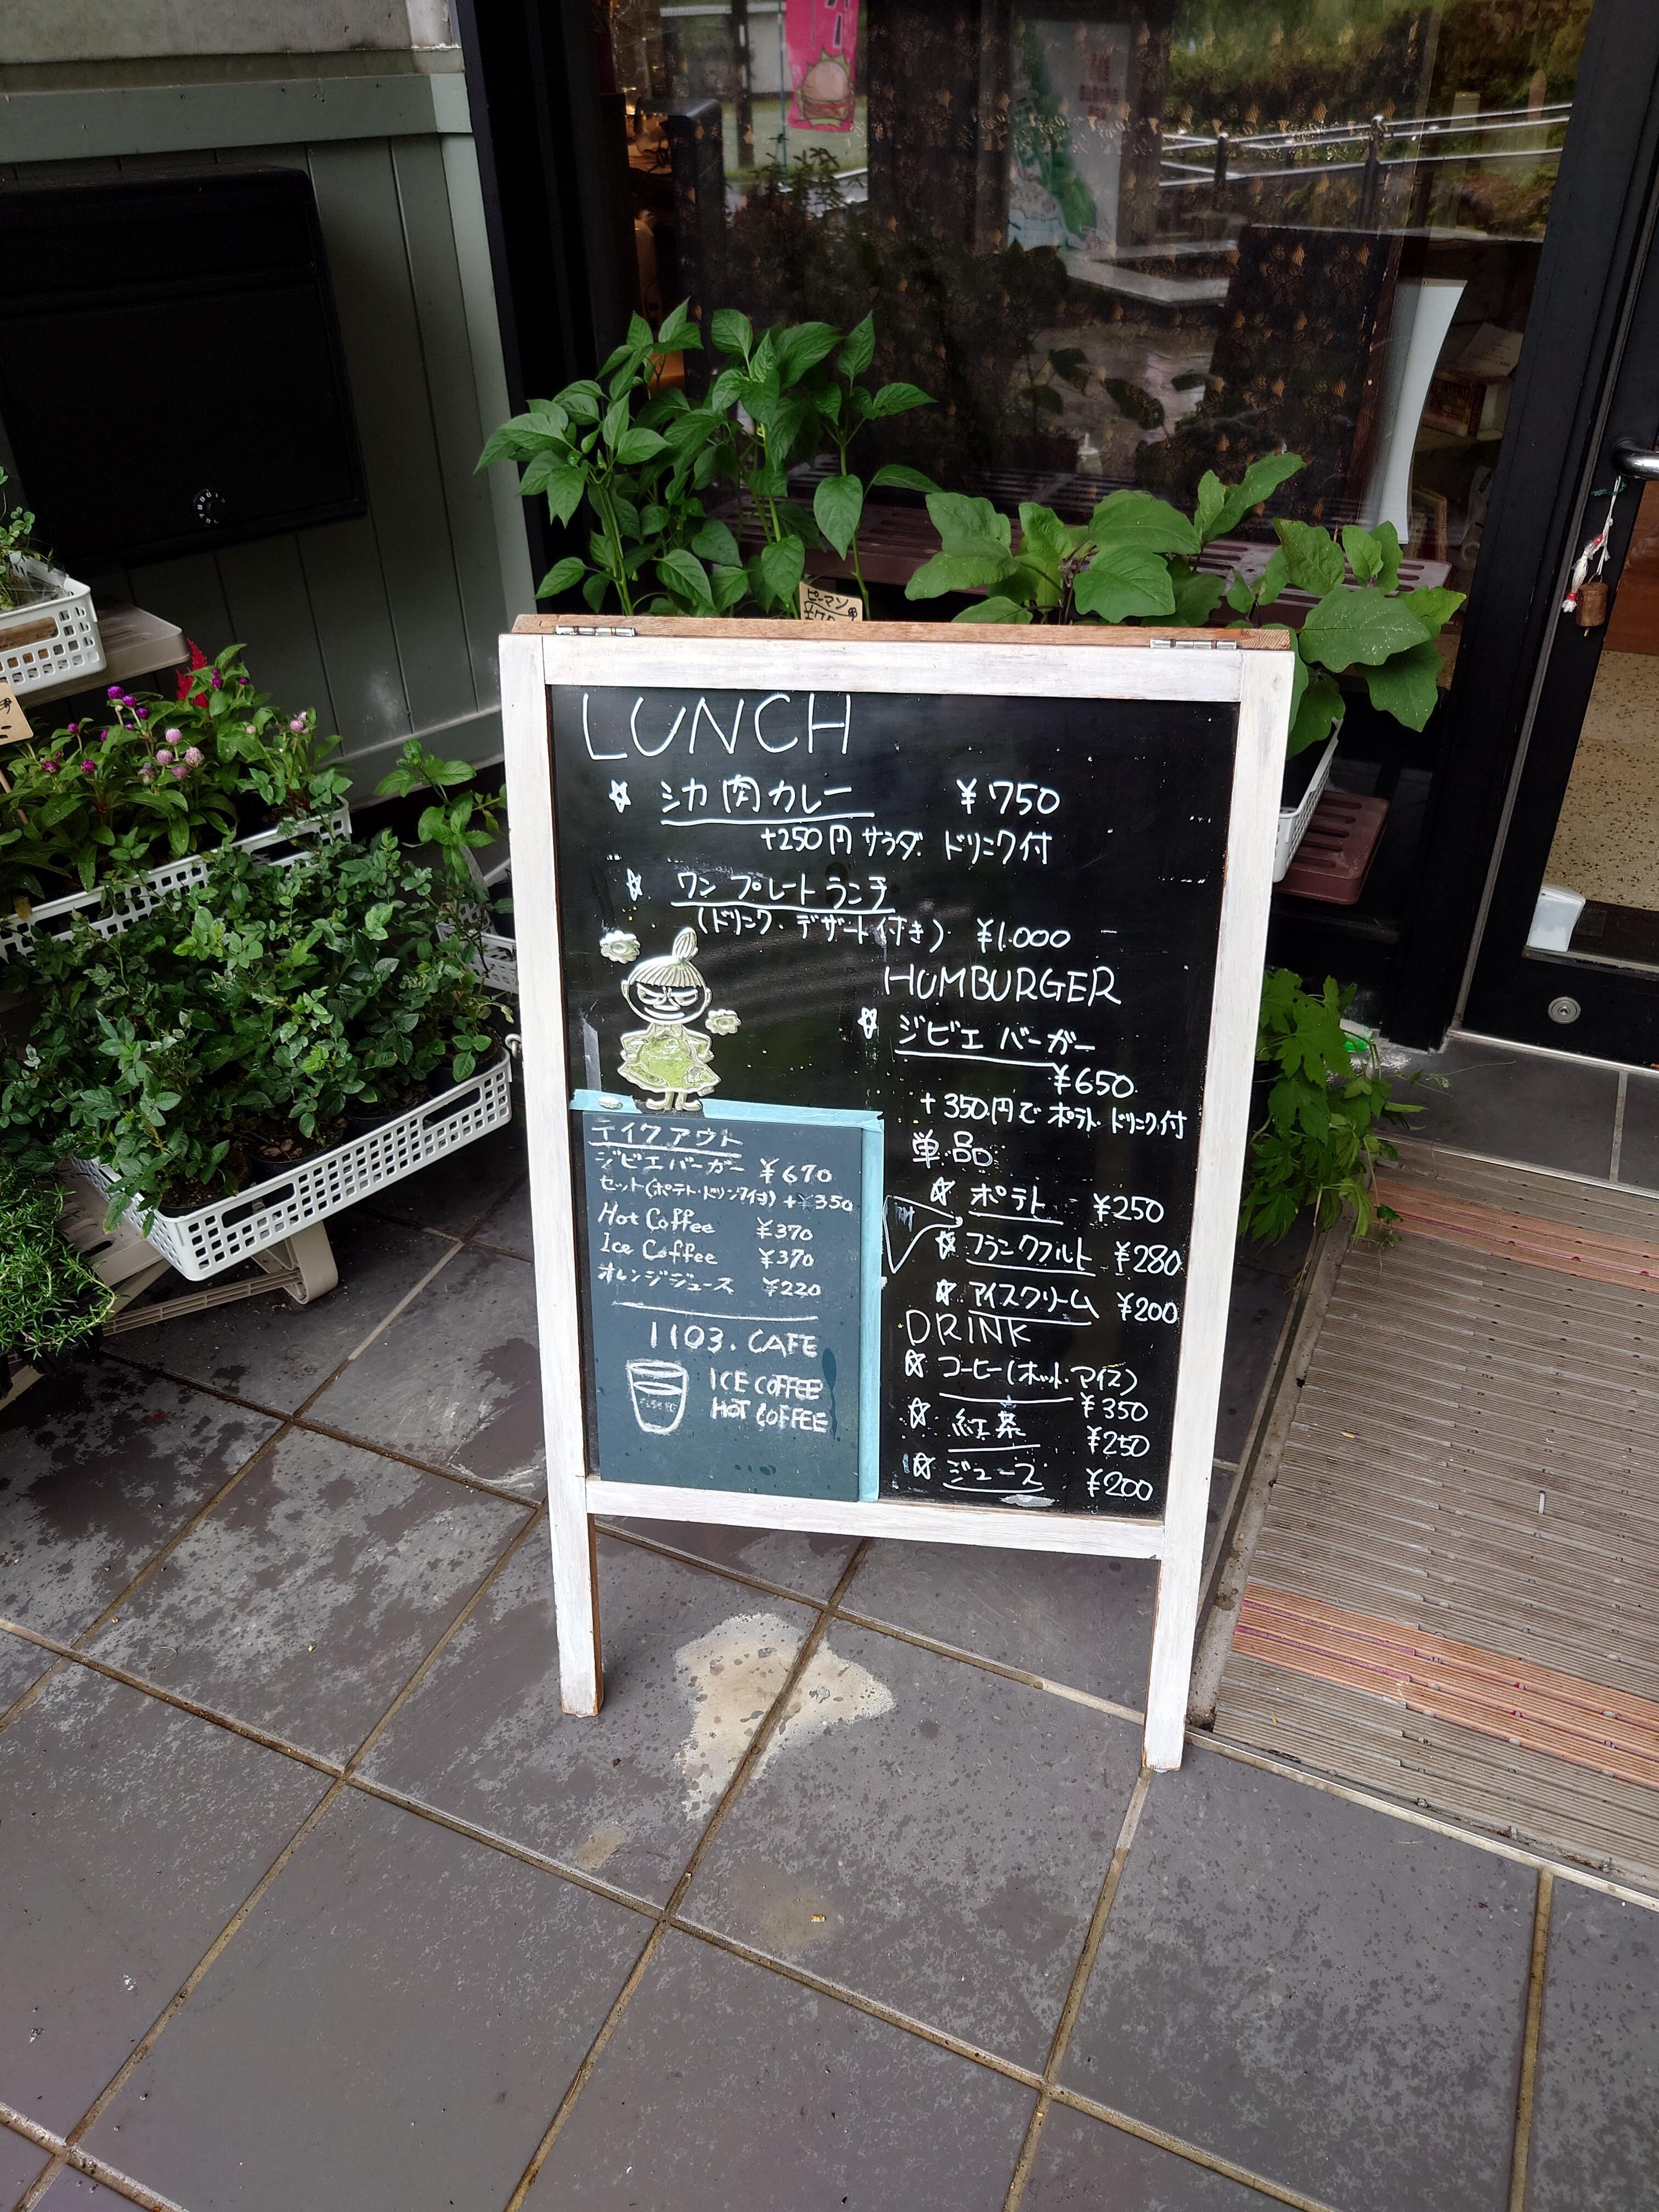 ピーマン
LUNCH
☆ シカ肉カレー ¥750
+250円 サラダ ドリンク付
☆ ワンプレートランチ
(ドリンク・デザート付き) ¥1.000
HUMBURGER
☆ ジビエバーガー
¥650
+350円で ポテト・ドリンク付
単品
☆ ポテト ¥250
☆ フランクフルト ¥280
☆ アイスクリーム ¥200
DRINK
☆ コーヒー(ホット・アイス)
¥350
☆ 紅茶 ¥250
☆ ジュース ¥200
テイクアウト
ジビエバーガー ¥670
セット(ポテト・ドリンク付) +¥350
Hot Coffee ¥370
Ice Coffee ¥370
オレンジジュース ¥220
1103. CAFE
ICE COFFEE
HOT COFFEE